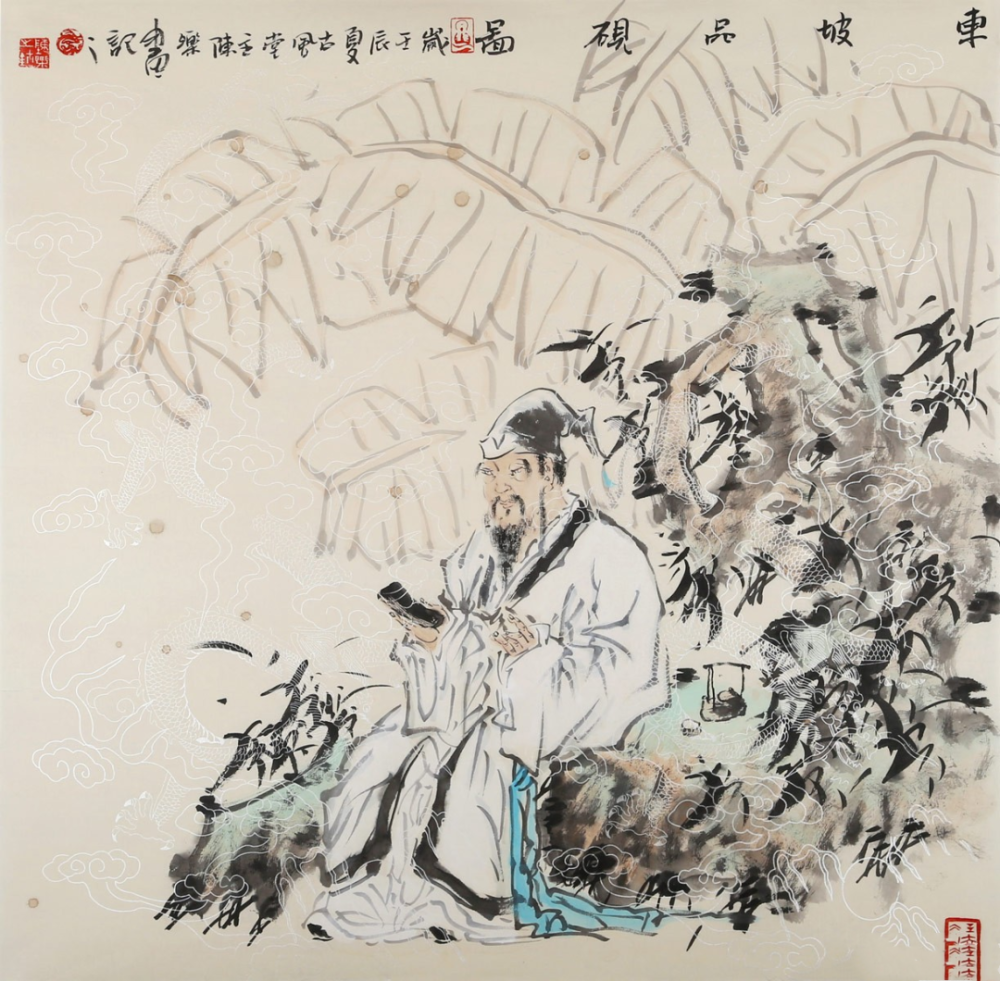 東坡品硯圖 歲壬辰夏古風堂主陳樂記